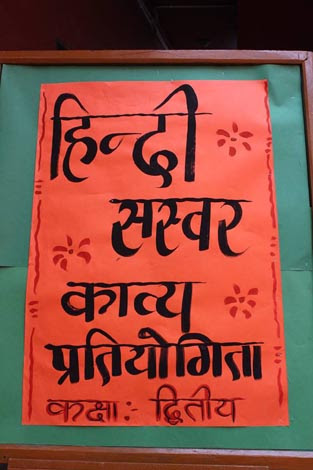 हिन्दी
सस्वर
काव्य
प्रतियोगिता
कक्षा:- द्वितीय